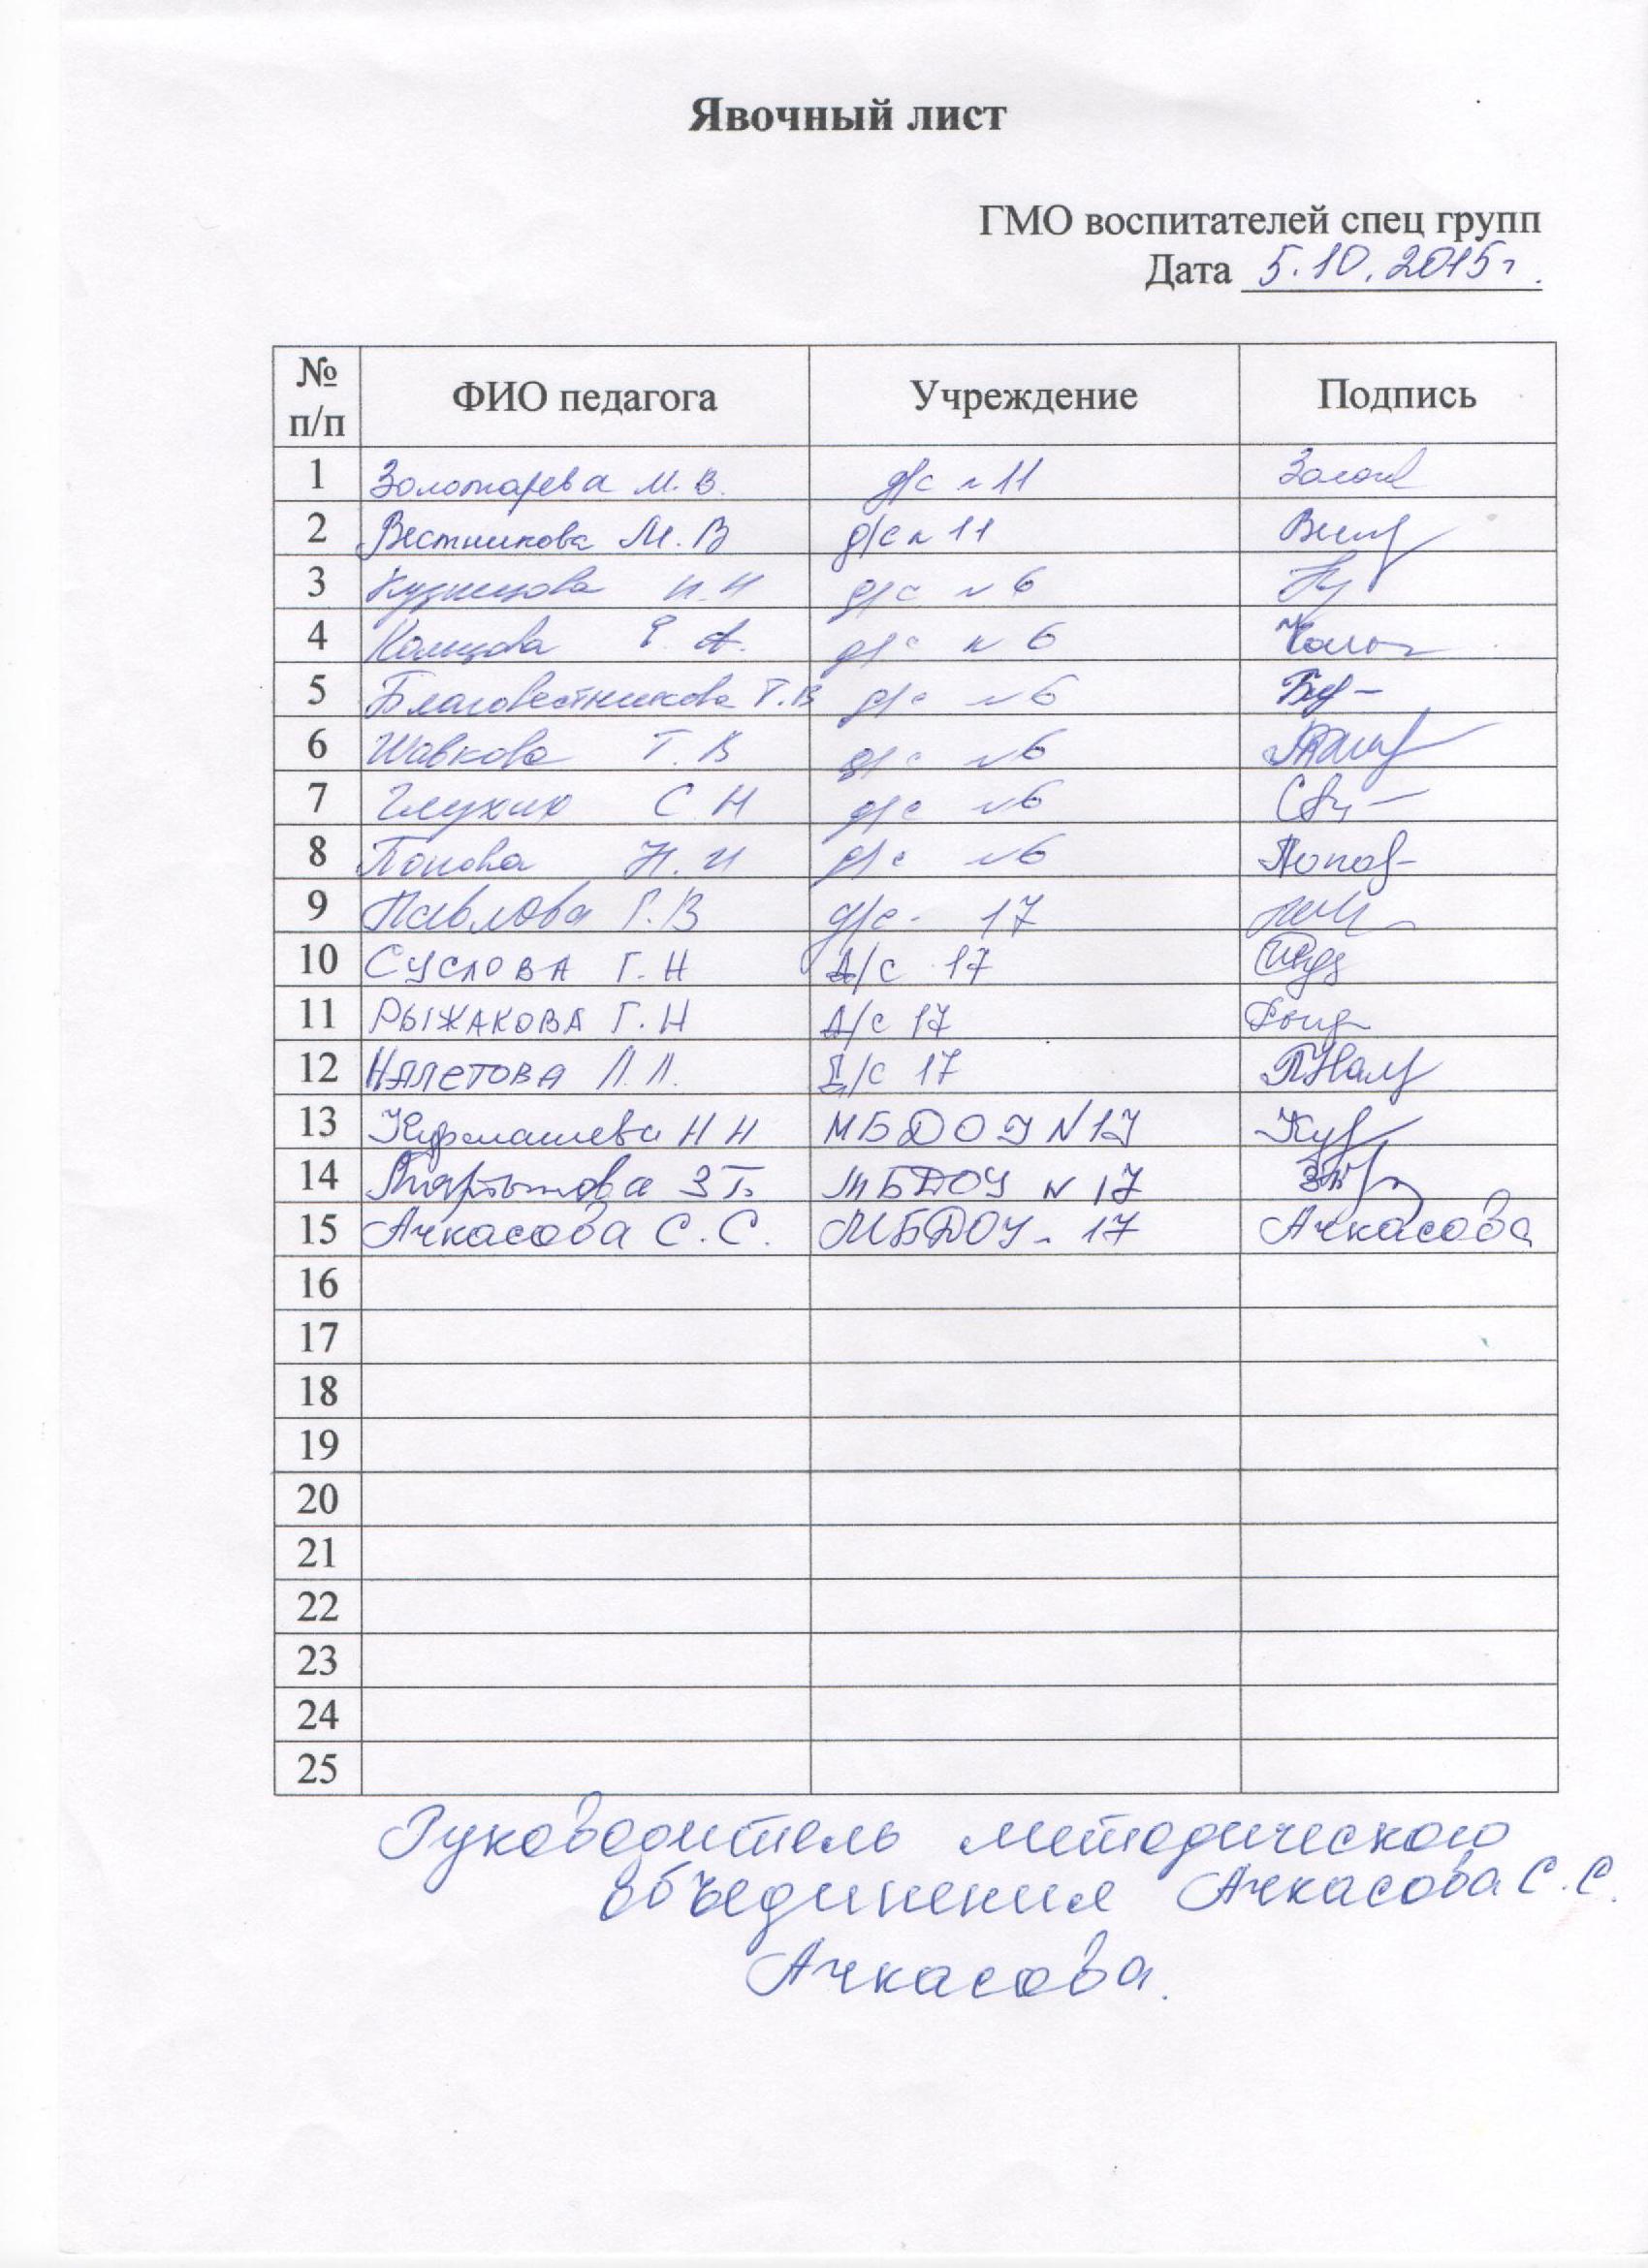 Явочный лист
ГМО воспитателей спец групп
Дата 5.10.2015г.
№ п/п ФИО педагога Учреждение Подпись
1 Золотарева М. В. д/с №11
2 Вестникова М. В д/с №11
3 Кузнецова Н. Н д/с №6
4 Кольцова Е. А. д/с №6
5 Благовестникова Т.В д/с №6
6 Шавкова Т. В д/с №6
7 С. Н д/с №6
8 Попова Н. И д/с №6 Попов
9 Павлова Г. В д/с - 17
10 СУСЛОВА Г. Н Д/С 17
11 РЫЖАКОВА Г. Н Д/С 17
12 НАЛЕТОВА Л. Л. Д/С 17
13 Курмашева Н Н МБДОУ №17
14 Мартынова З Г. МБДОУ №17
15 Ачкасова С. С. МБДОУ - 17 Ачкасова
16
17
18
19
20
21
22
23
24
25
Руководитель методического
объединения Ачкасова С. С.
Ачкасова.